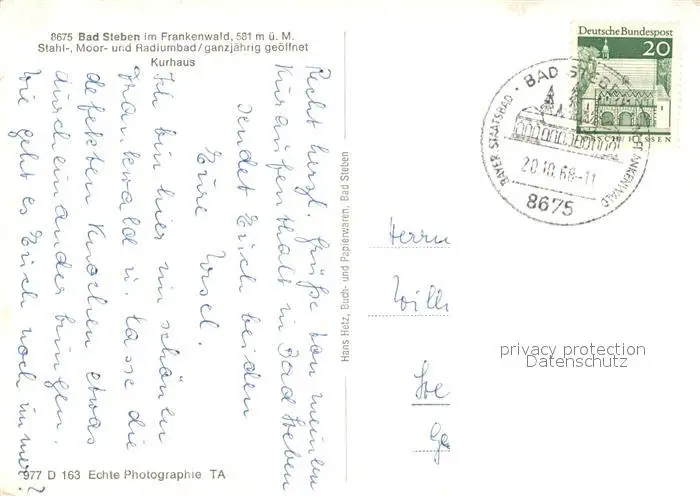 8675 Bad Steben im Frankenwald, 581 m ü. M.
Stahl-, Moor- und Radiumbad/ganzjährig geöffnet
Kurhaus
Recht herzl. Grüße von meinem
Kuraufenthalt in Bad Steben
sendet Euch beiden
Eure Ursel.
Ich bin hier im schönen
Frankwald u. lasse die
defekten Knochen etwas
durcheinander bringen.
Wie geht es Euch noch immer?
977 D 163 Echte Photographie TA
Hans Hetz, Buch- und Papierwaren, Bad Steben
Deutsche Bundespost
20
LORSCH/HESSEN
BAD STEBEN
BAYER STAATSBAD
FRANKENWALD
20.10.68-11
8675
Herrn
Willi
privacy protection
Datenschutz